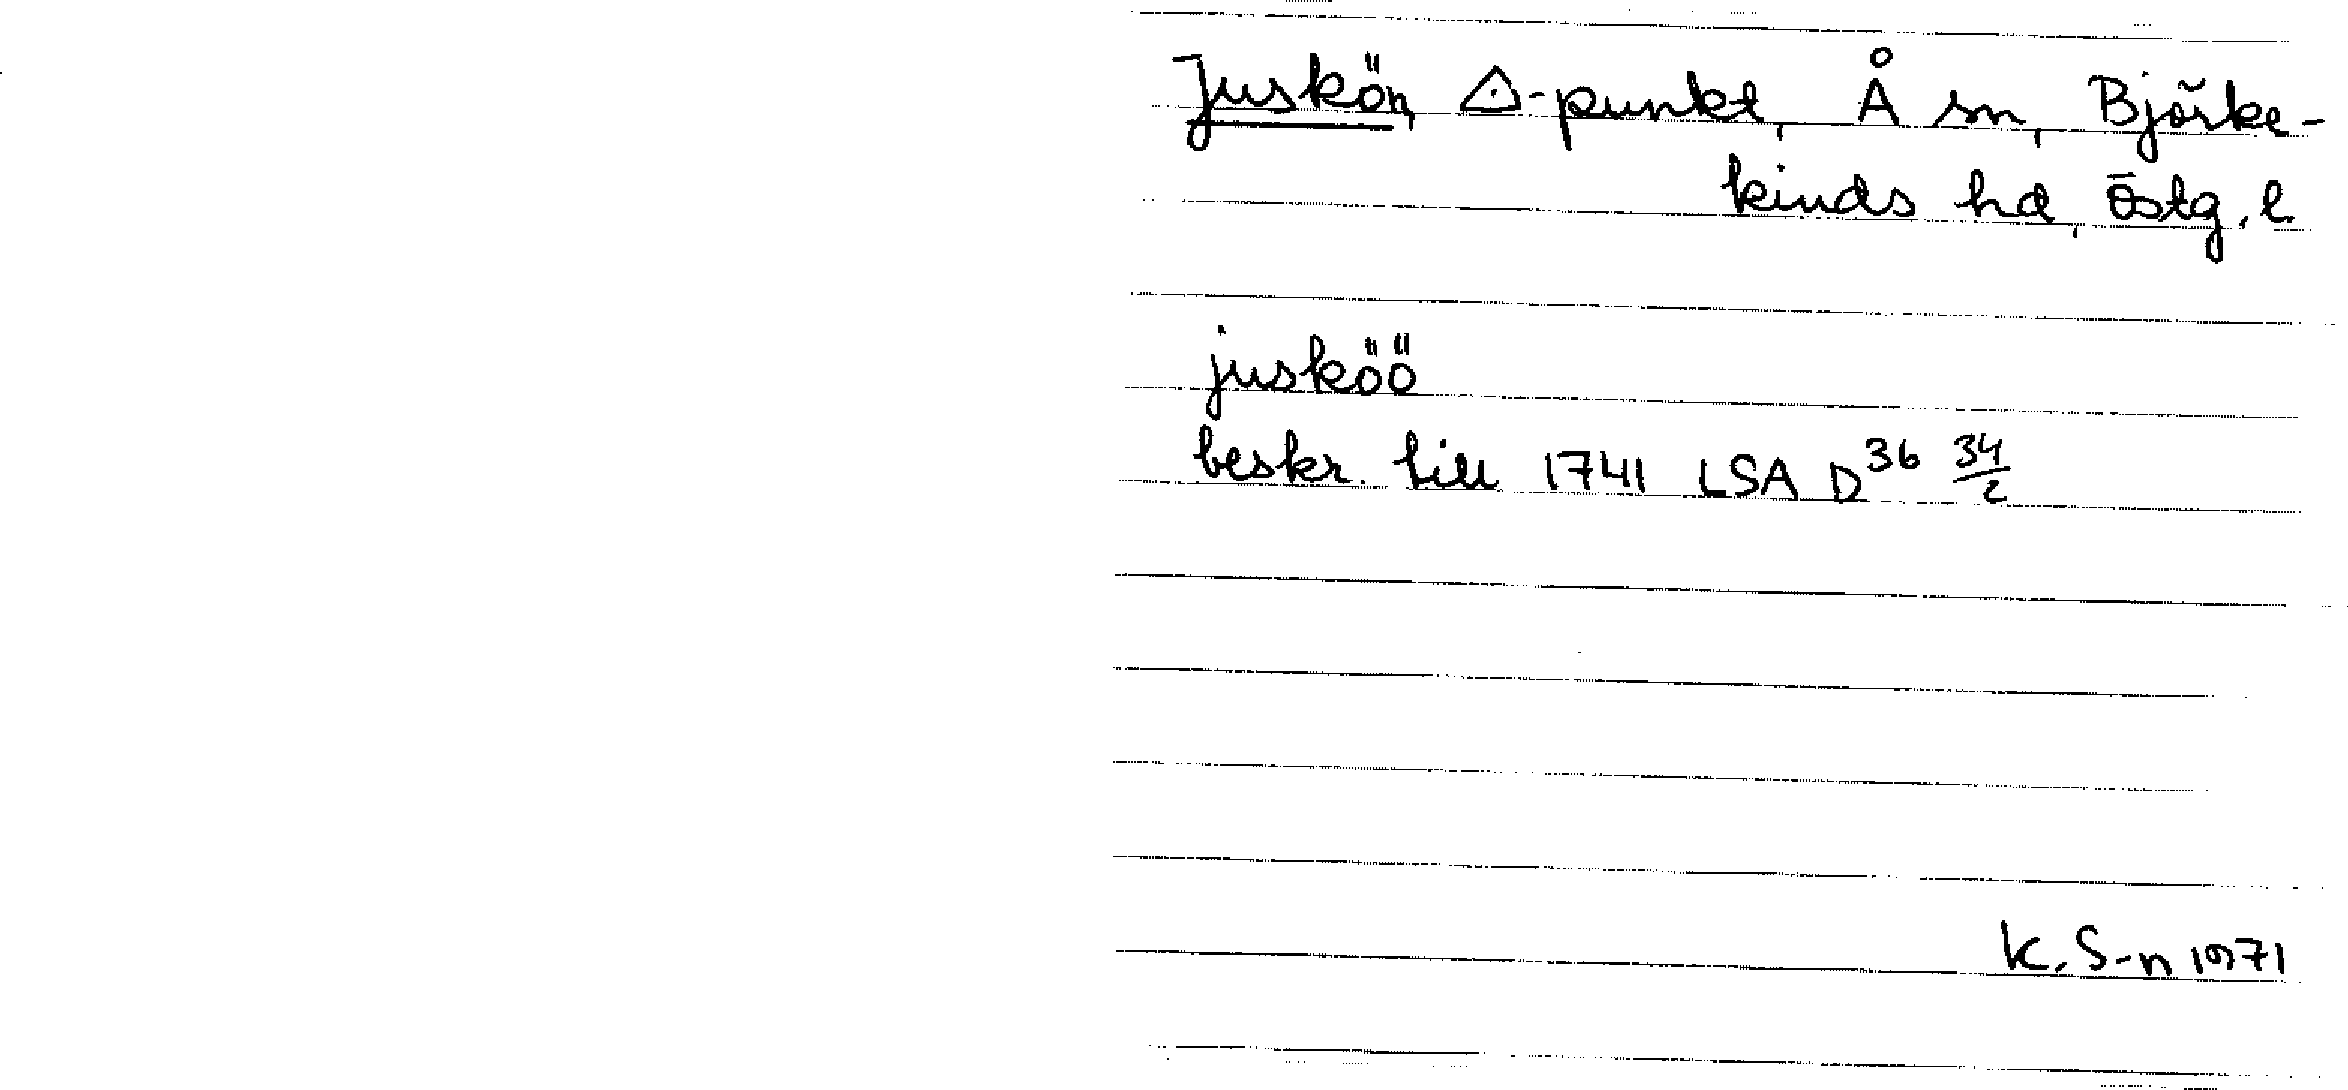 Juskön, △-punkt, Å sn, Björke-
kinds hd, Östg. l.
jusköö
beskr. till 1741 LSA D³⁶ 34/2
K. S-n 1971